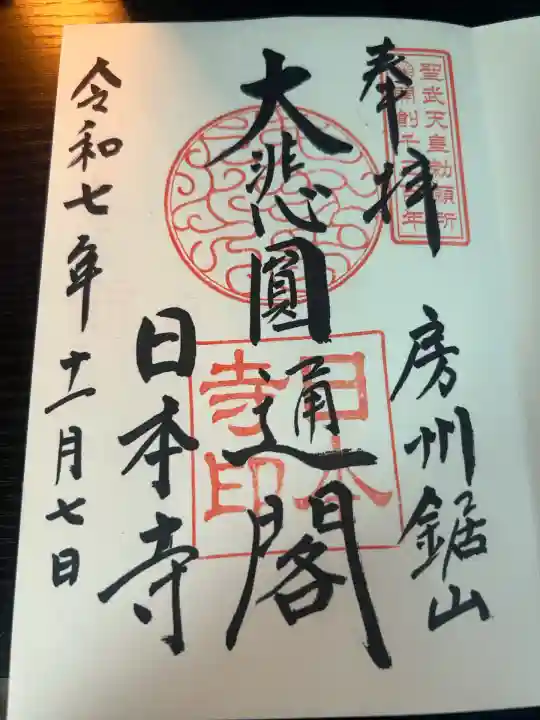 聖武天皇勅願所
開創千三百年
奉拝
房州鋸山
大悲圓通閣
日本
寺印
日本寺
令和七年十一月七日